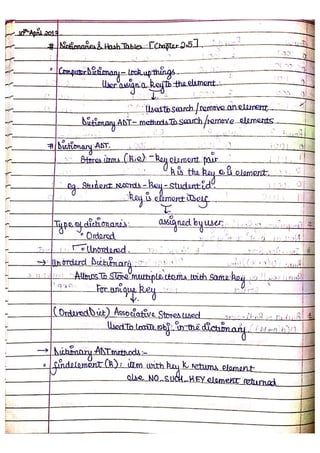 10th April 201
# Dictionaries & Hash Tables [Chapter 2.5]
• Computer Dictionary - look up things.
User assign a key to the element.
Used to search / remove an element.
Dictionary ADT - methods To search / remove elements
# Dictionary ADT.
Stores items (k,e) - key element pair
k is the key e is element.
eg. Student records - key - student id
key is element itself
assigned by user.
Type of dictionaries:
• Ordered
• Unordered.
→ Unorderd Dictionary
Allows To Store multiple items with same key
For unique key
(Ordered Dict) Associative Stores used
Used to locate obj. in the dictionary
→ Dictionary ADT methods:-
• findelement (k): item with key k returns element
else NO_SUCH_KEY element returned